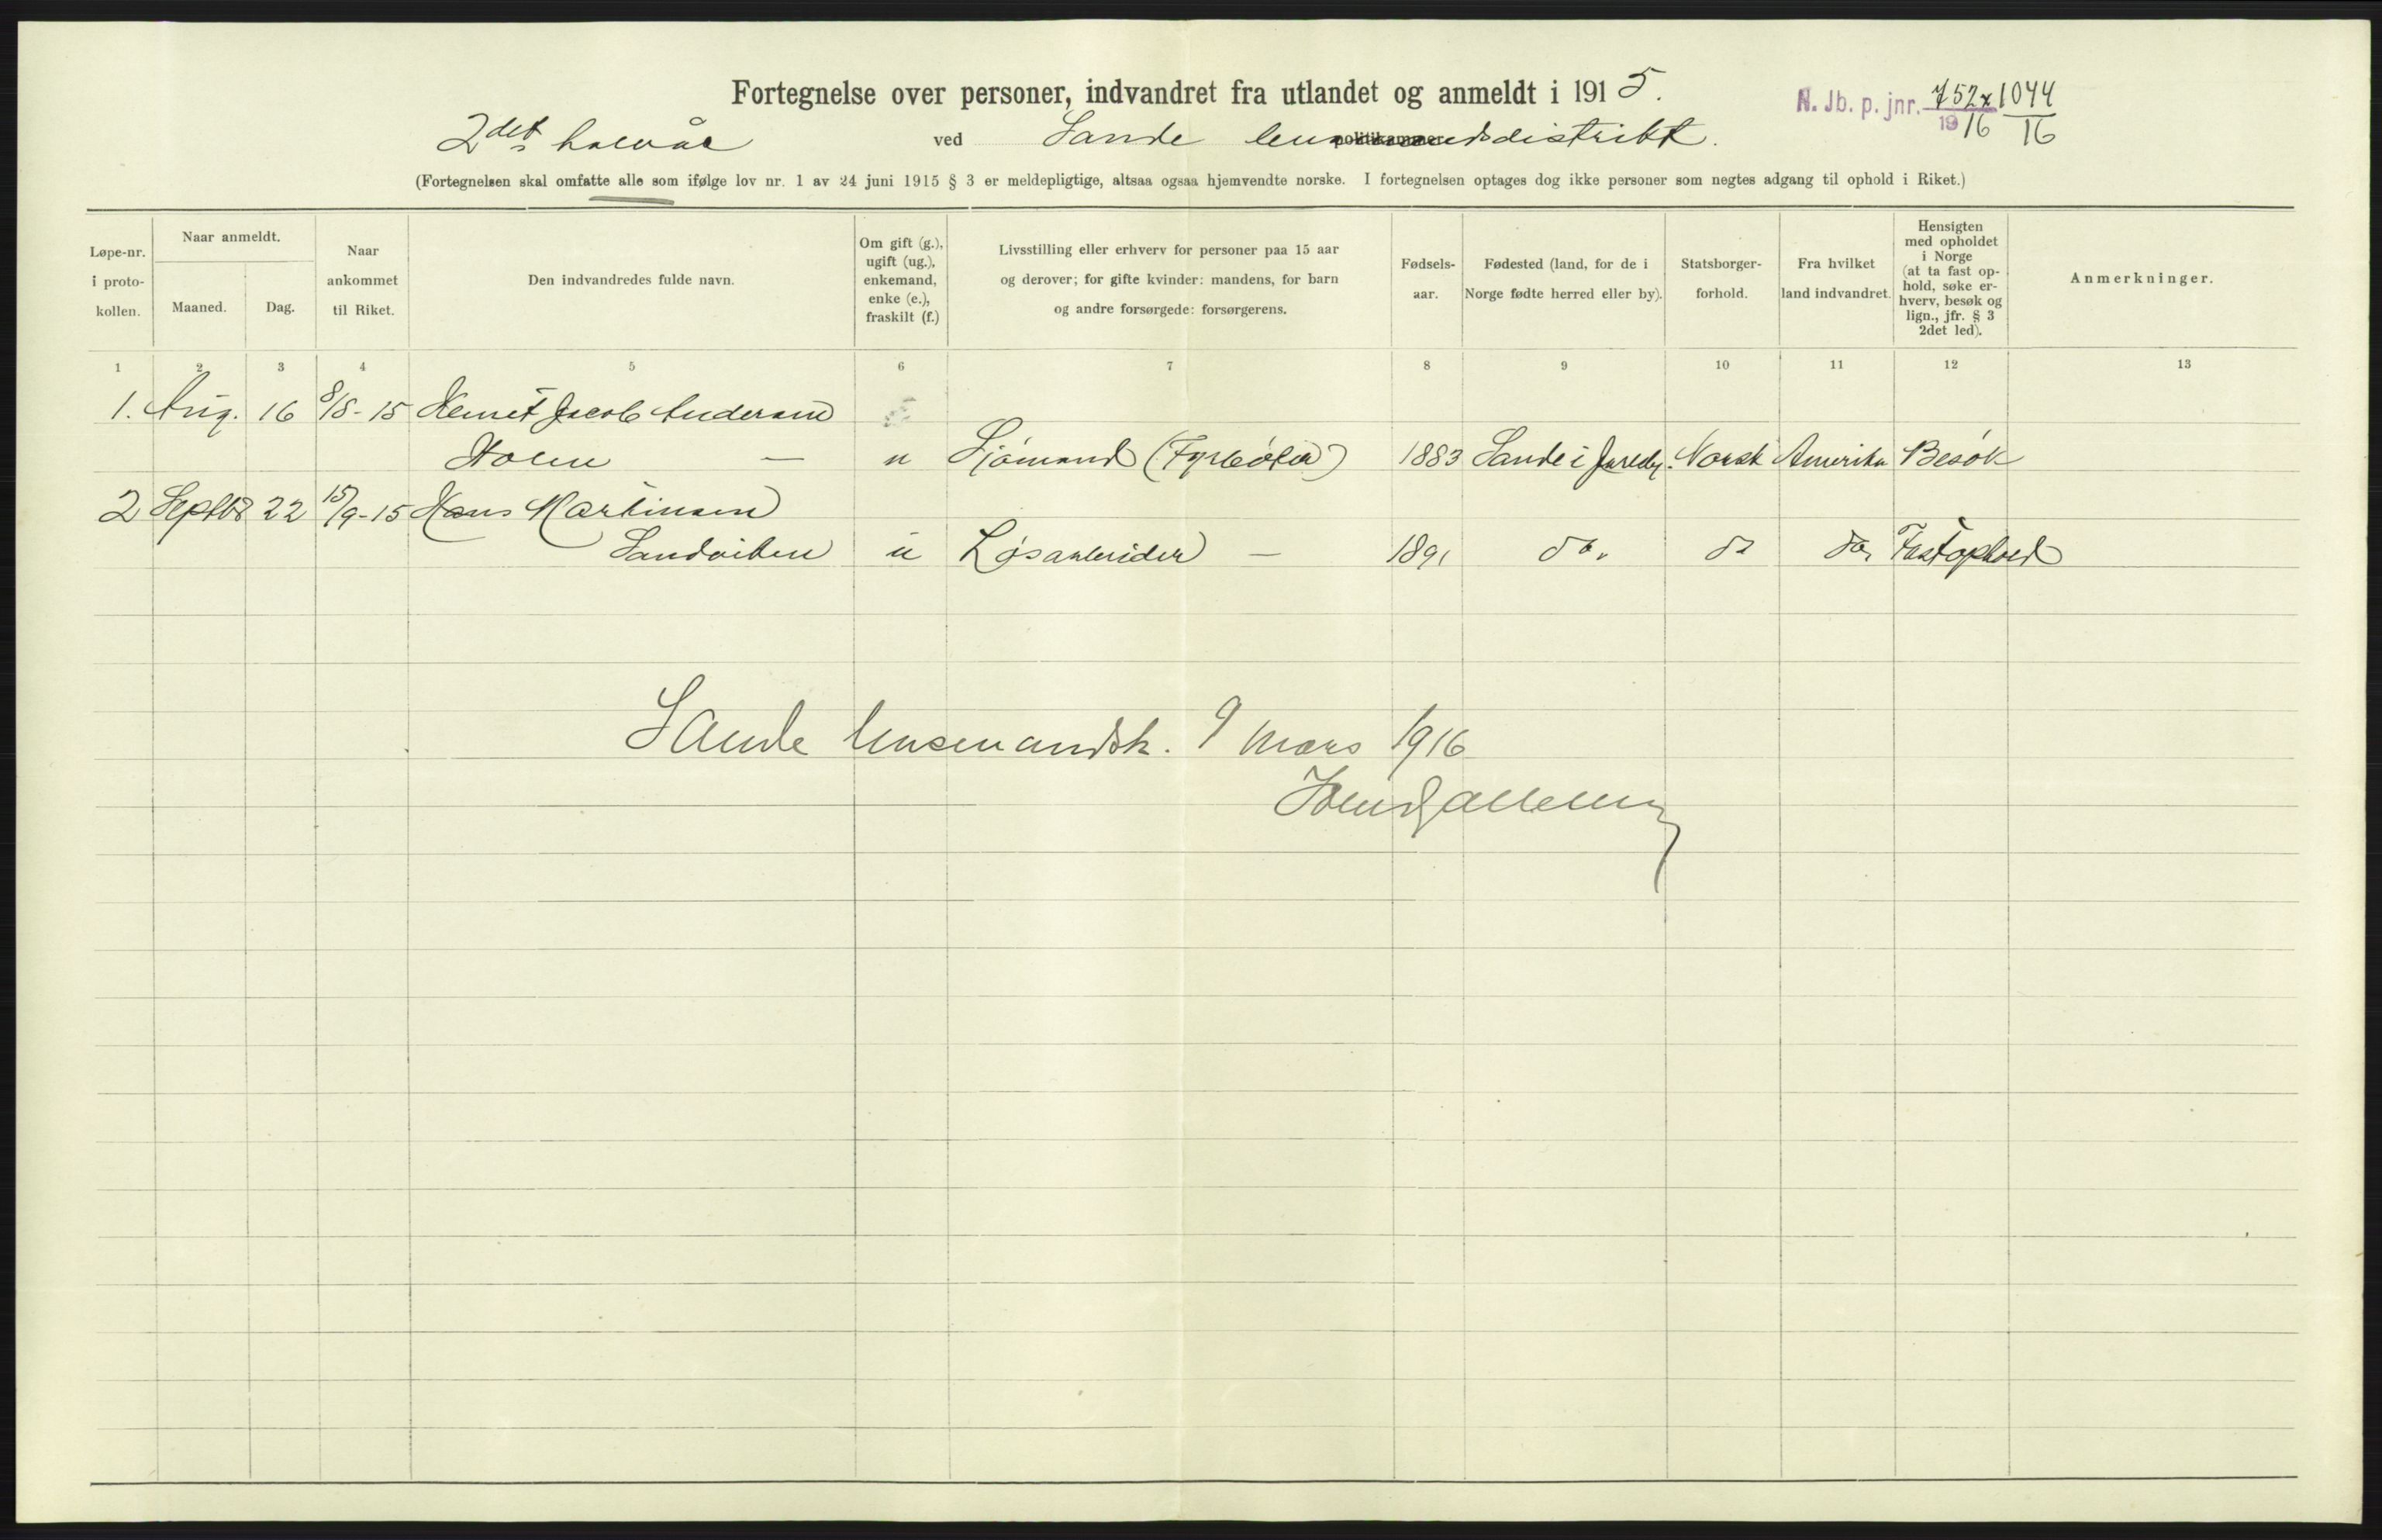 Fortegnelse over personer, indvandret fra utlandet og anmeldt i 1915.
N. Jb. p. jnr. 752 x 1044
1916 16
2det halvår ved Sande lensmandsdistrikt.
(Fortegnelsen skal omfatte alle som ifølge lov nr. 1 av 24 juni 1915 § 3 er meldepligtige, altsaa ogsaa hjemvendte norske. I fortegnelsen optages dog ikke personer som negtes adgang til ophold i Riket.)
Løpe-nr. i proto- kollen.
Naar anmeldt.
Maaned. Dag.
Naar ankommet til Riket.
Den indvandredes fulde navn.
Om gift (g.), ugift (ug.), enkemand, enke (e.), fraskilt (f.)
Livsstilling eller erhverv for personer paa 15 aar
og derover; for gifte kvinder: mandens, for barn
og andre forsørgede: forsørgerens.
Fødsels- aar.
Fødested (land, for de i
Norge fødte herred eller by).
Statsborger- forhold.
Fra hvilket land indvandret.
Hensigten med opholdet i Norge (at ta fast op- hold, søke er- hverv, besøk og lign., jfr. § 3 2det led).
Anmerkninger.
1 2 3 4 5 6 7 8 9 10 11 12 13
1. Aug. 16 8/8-15 Jacob Andersen
Holm — u Sjömand (Fyrbøter) 1883 Sande i Jarlsby. Norsk Amerika Besök
2 Septbr 22 15/9-15 Hans Martinsen
Sandviken u Løsarbeider — 1891 do. do do, Fast ophold
Sande lensmandsk. 9 Mars 1916